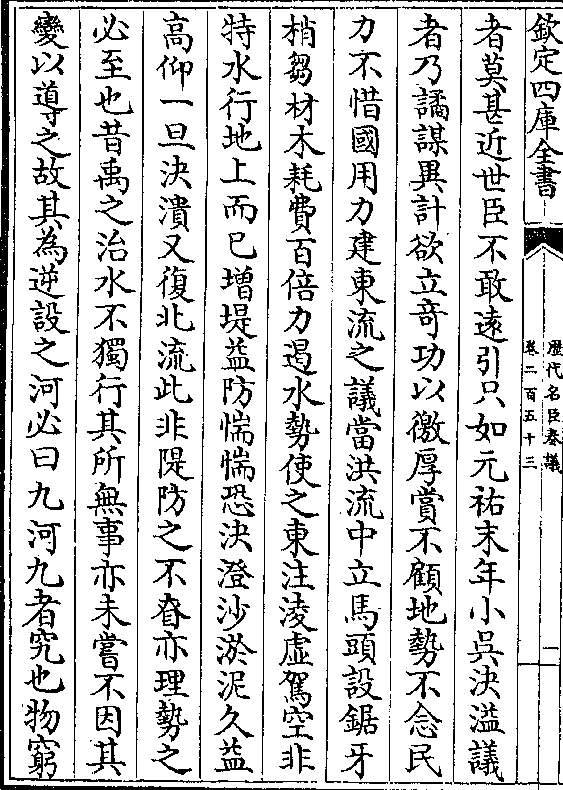 欽定四庫全書
歷代名臣奏議
卷二百五十三
一
者莫甚近世臣不敢遠引只如元祐末年小吳決溢議
者乃譎謀異計欲立竒功以徼厚賞不顧地勢不念民
力不惜國用力建東流之議當洪流中立馬頭設鋸牙
梢芻材木耗費百倍力遏水勢使之東注淩虛駕空非
特水行地上而已增堤益防惴惴恐決澄沙淤泥久益
高仰一旦決潰又復北流此非隄防之不眘亦理勢之
必至也昔禹之治水不獨行其所無事亦未嘗不因其
變以導之故其為逆設之河必曰九河九者究也物窮